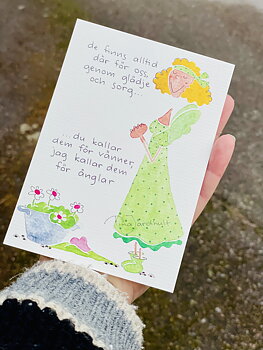 de finns alltid
där för oss,
genom glädje
och sorg..
...du kallar
dem för vänner,
jag kallar dem
för änglar